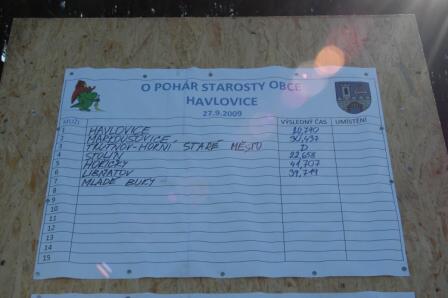 O POHÁR STAROSTY OBCE
HAVLOVICE
27.9.2009
MUŽI VÝSLEDNÝ ČAS UMÍSTĚNÍ
1 HAVLOVICE
2 MARŠOVICE
3 TRUTNOV-HORNÍ STARÉ MĚSTO D
4 STOLÍN 22,658
5 HOŘIČKY 41,707
6 LIBŇATOV 39,719
7 MLADÉ BUKY
8
9
10
11
12
13
14
15